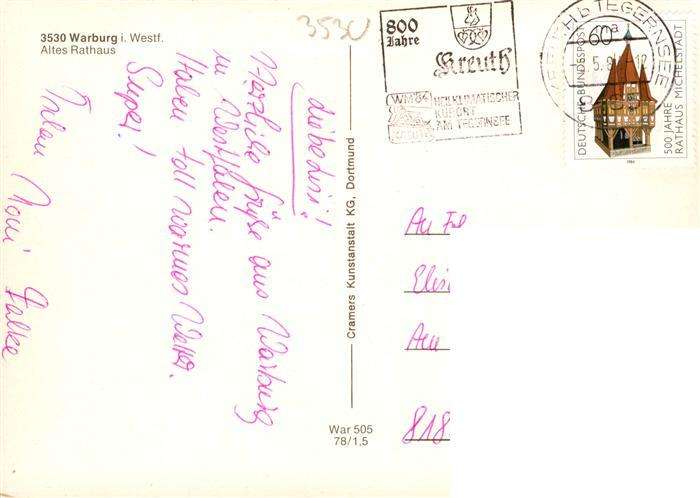 3530 Warburg i. Westf.
Altes Rathaus
3530
800
Jahre
Kreuth
HEILKLIMATISCHER
KURORT
AM TEGERNSEE
KREUTH b TEGERNSEE
DEUTSCHE BUNDESPOST
60
500 JAHRE
RATHAUS MICHELSTADT
1984
Liebe Lisi!
Herzliche Grüße aus Warburg
in Westfalen.
Haben toll warmes Wetter.
Super!
Falke
Cramers Kunstanstalt KG, Dortmund
An
Elisi
Am
818
War 505
78/1,5